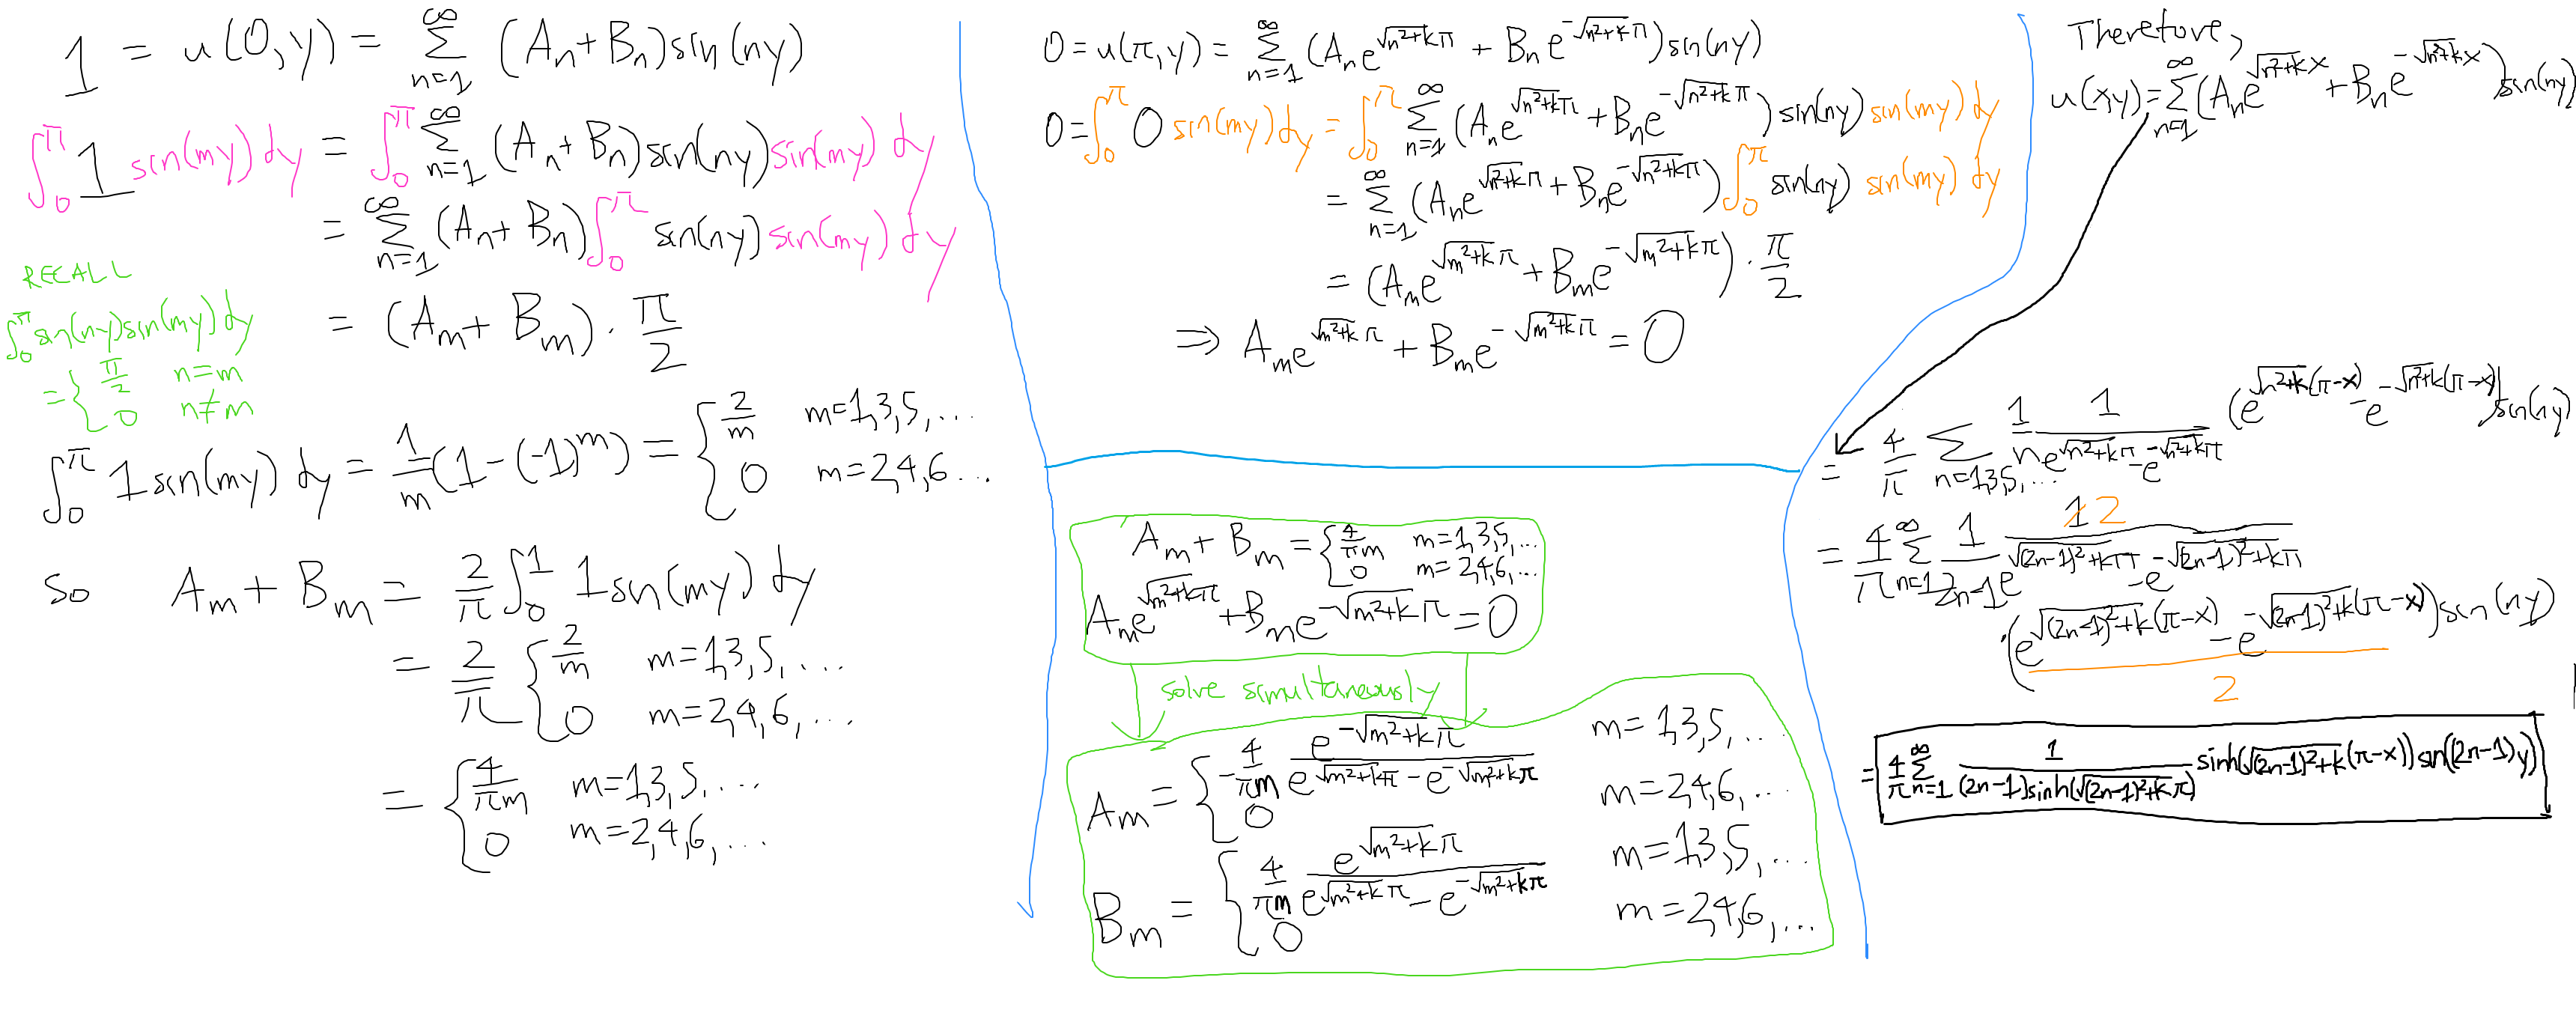 1 = u(0,y) = ∑_{n=1}^{∞} (A_n + B_n) sin(ny)
∫_0^π 1 sin(my) dy = ∫_0^π ∑_{n=1}^{∞} (A_n + B_n) sin(ny) sin(my) dy
= ∑_{n=1}^{∞} (A_n + B_n) ∫_0^π sin(ny) sin(my) dy
RECALL
∫_0^π sin(ny) sin(my) dy
= { π/2 n=m
0 n≠m
= (A_m + B_m) · π/2
∫_0^π 1 sin(my) dy = 1/m (1-(-1)^m) = { 2/m m=1,3,5,...
0 m=2,4,6...
so A_m + B_m = 2/π ∫_0^1 1 sin(my) dy
= 2/π { 2/m m=1,3,5,...
0 m=2,4,6,...
= { 4/(πm) m=1,3,5,...
0 m=2,4,6,...
0 = u(π,y) = ∑_{n=1}^{∞} (A_n e^{√(n²+k)π} + B_n e^{-√(n²+k)π}) sin(ny)
0 = ∫_0^π 0 sin(my) dy = ∫_0^π ∑_{n=1}^{∞} (A_n e^{√(n²+k)π} + B_n e^{-√(n²+k)π}) sin(ny) sin(my) dy
= ∑_{n=1}^{∞} (A_n e^{√(n²+k)π} + B_n e^{-√(n²+k)π}) ∫_0^π sin(ny) sin(my) dy
= (A_m e^{√(m²+k)π} + B_m e^{-√(m²+k)π}) · π/2
⇒ A_m e^{√(m²+k)π} + B_m e^{-√(m²+k)π} = 0
A_m + B_m = { 4/(πm) m=1,3,5,...
0 m=2,4,6,...
A_m e^{√(m²+k)π} + B_m e^{-√(m²+k)π} = 0
solve simultaneously
A_m = { -4/(πm) e^{-√(m²+k)π} / (e^{√(m²+k)π} - e^{-√(m²+k)π}) m=1,3,5,...
0 m=2,4,6,...
B_m = { 4/(πm) e^{√(m²+k)π} / (e^{√(m²+k)π} - e^{-√(m²+k)π}) m=1,3,5,...
0 m=2,4,6,...
Therefore,
u(x,y) = ∑_{n=1}^{∞} (A_n e^{√(n²+k)x} + B_n e^{-√(n²+k)x}) sin(ny)
= 4/π ∑_{n=1,3,5,...} 1/n 1/(e^{√(n²+k)π} - e^{-√(n²+k)π}) (e^{√(n²+k)(π-x)} - e^{-√(n²+k)(π-x)}) sin(ny)
= 4/π ∑_{n=1}^{∞} 1/(2n-1) 1 2/(e^{√((2n-1)²+k)π} - e^{-√((2n-1)²+k)π})
· (e^{√((2n-1)²+k)(π-x)} - e^{-√((2n-1)²+k)(π-x)}) sin(ny)
2
= 4/π ∑_{n=1}^{∞} 1/((2n-1) sinh(√((2n-1)²+k)π)) sinh(√((2n-1)²+k)(π-x)) sin((2n-1)y)